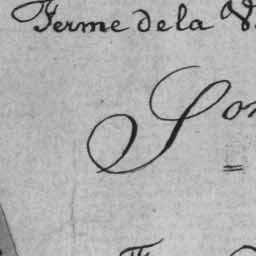 Ferme de la V
Son